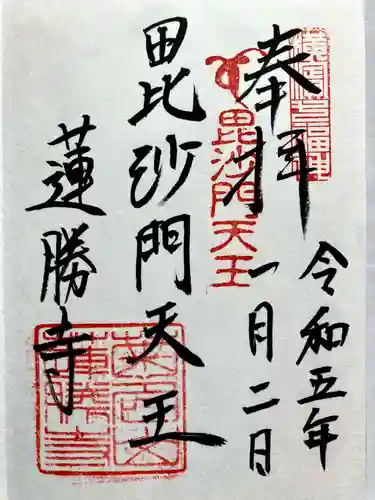 奉拝
令和五年
一月二日
毘沙門天王
毘沙門天王
蓮勝寺
横浜七福神